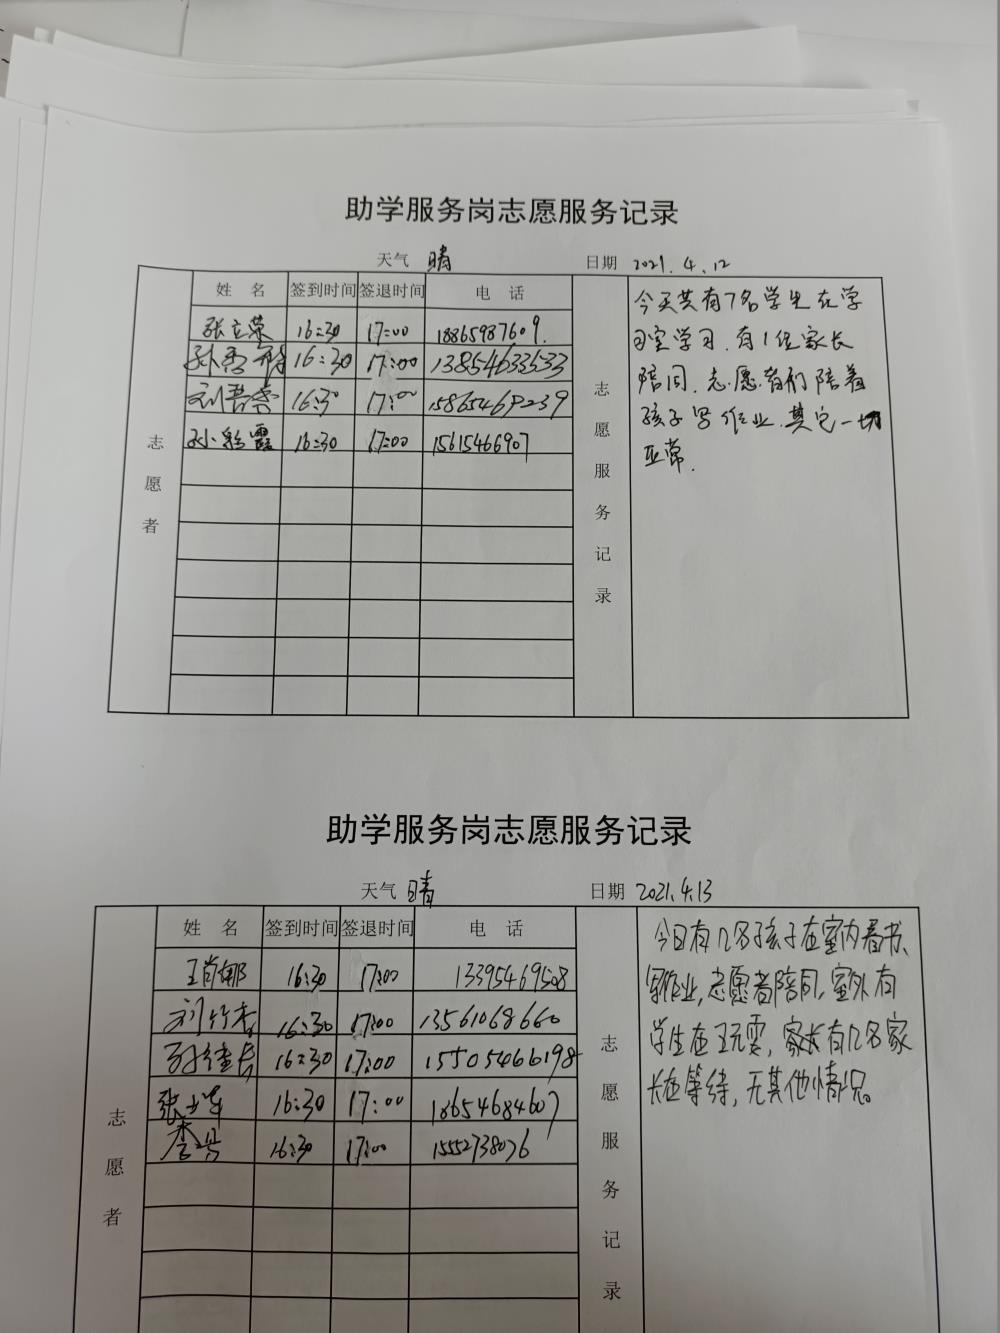 助学服务岗志愿服务记录
天气 晴 日期 2021.4.12
姓 名 签到时间 签退时间 电 话
张立荣 16:30 17:00 18865987609.
孙 16:30 17:00 13854633533
刘 16:30 17:00 15865469239
孙彩霞 16:30 17:00 15615466907
志愿者
志愿服务记录
今天共有7名学生在学
习室学习.有1位家长
陪同.志愿者们陪着
孩子写作业.其它一切
正常.
助学服务岗志愿服务记录
天气 晴 日期 2021.4.13
姓 名 签到时间 签退时间 电 话
王肖娜 16:30 17:00 13395469508
刘竹青 16:30 17:00 13561068660
16:30 17:00 15505466198
张 16:30 17:00 18654684607
李 16:30 17:00 15552738076
志愿者
志愿服务记录
今日有几名孩子在室内看书、
写作业,志愿者陪同,室外有
学生在玩耍,家长有几名家
长在等待,无其他情况。